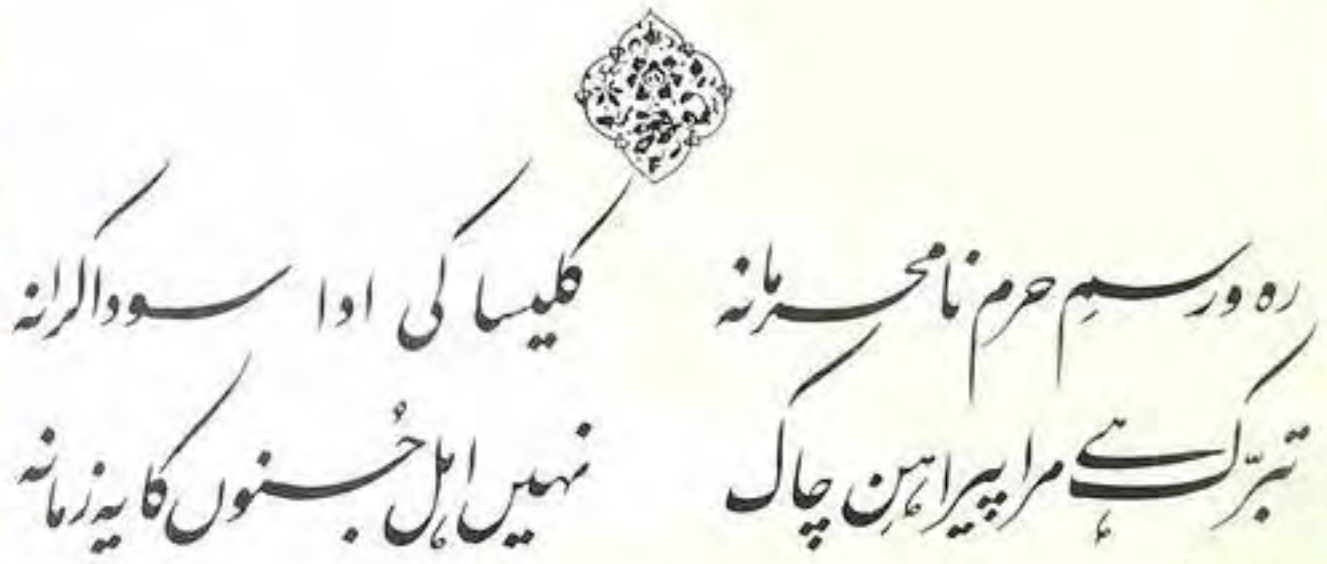 رہ و رسمِ حرم نامحرمانہ کلیسا کی ادا سوداگرانہ
تبرّک ہے مرا پیراہنِ چاک نہیں اہلِ جُنوں کا یہ زمانہ